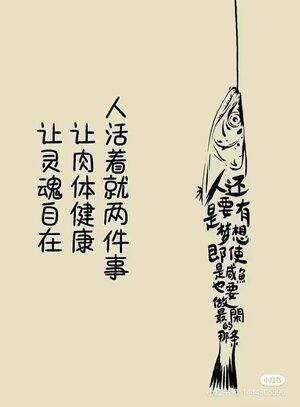 人活着就两件事
让肉体健康
让灵魂自在
人还是要有梦想即使是咸魚也要做最閑的那条
小红书